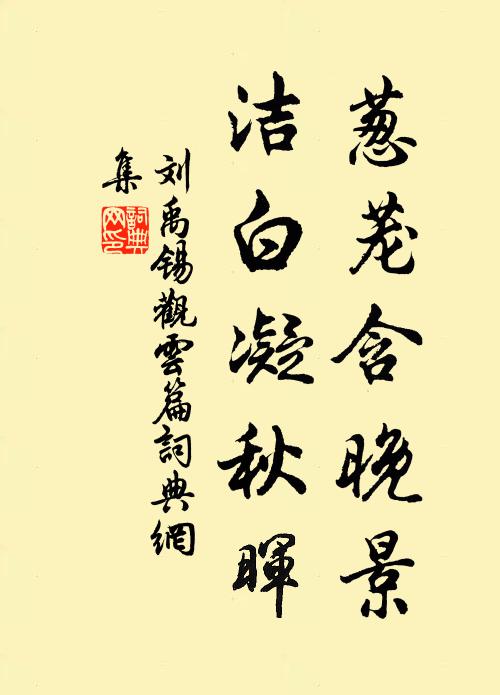 葱茏含晚景
洁白凝秋暉
刘禹锡觀雲篇詞典網
集
詞典网印